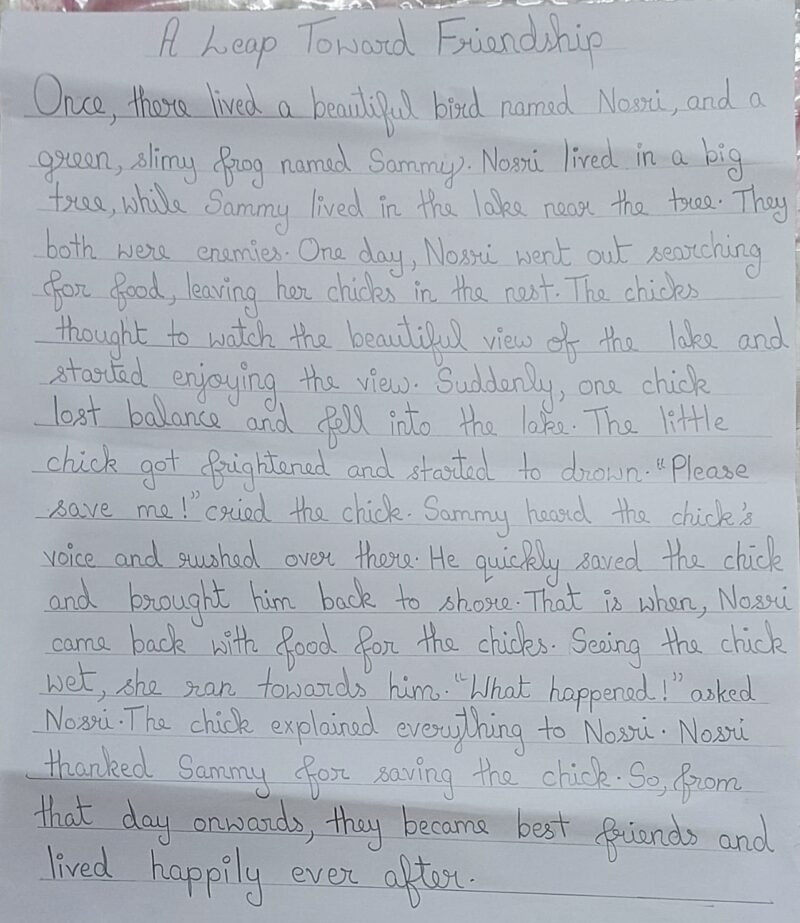 A Leap Toward Friendship
Once, there lived a beautiful bird named Nosri, and a
green, slimy frog named Sammy. Nosri lived in a big
tree, while Sammy lived in the lake near the tree. They
both were enemies. One day, Nosri went out searching
for food, leaving her chicks in the nest. The chicks
thought to watch the beautiful view of the lake and
started enjoying the view. Suddenly, one chick
lost balance and fell into the lake. The little
chick got frightened and started to drown. "Please
save me!" cried the chick. Sammy heard the chick's
voice and rushed over there. He quickly saved the chick
and brought him back to shore. That is when, Nosri
came back with food for the chicks. Seeing the chick
wet, she ran towards him. "What happened!" asked
Nosri. The chick explained everything to Nosri. Nosri
thanked Sammy for saving the chick. So, from
that day onwards, they became best friends and
lived happily ever after.